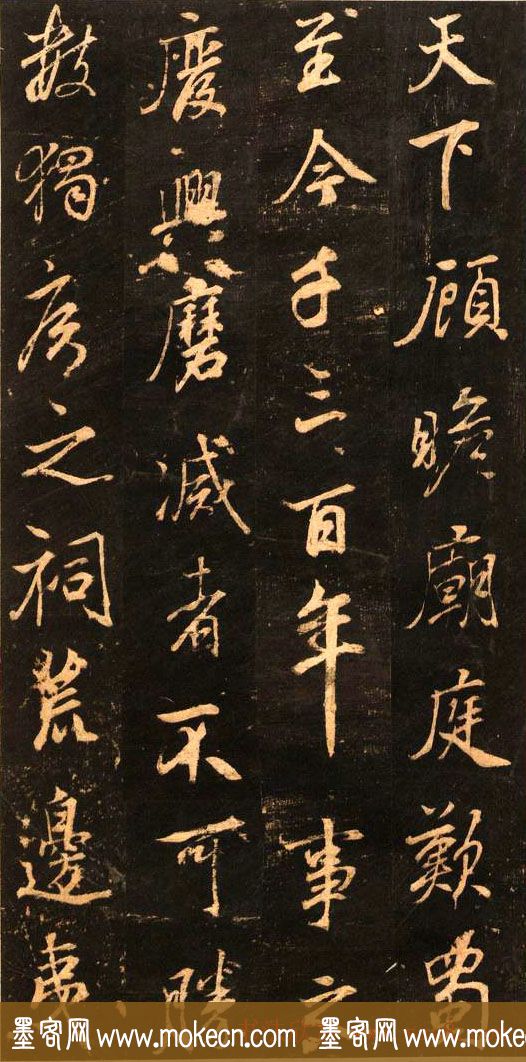 天下顧瞻廟庭歎蜀
至今千三百年事之
廢興磨滅者不可勝
數獨矦之祠荒邊夷
墨客网 www.mokecn.com 墨客网 www.mokecn.com